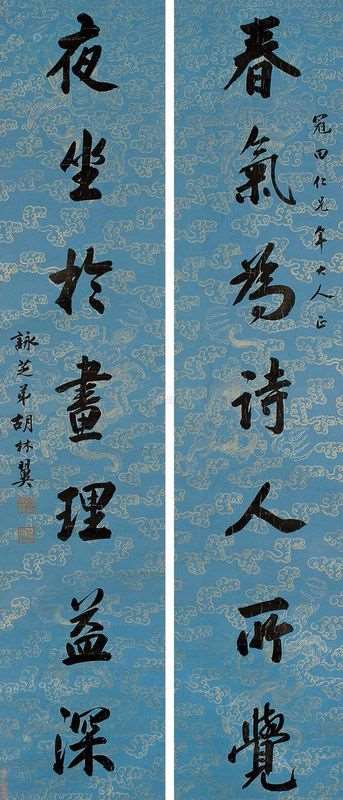 冠田仁兄年大人正
春氣為詩人所覺
夜坐於畫理益深
詠芝弟胡林翼